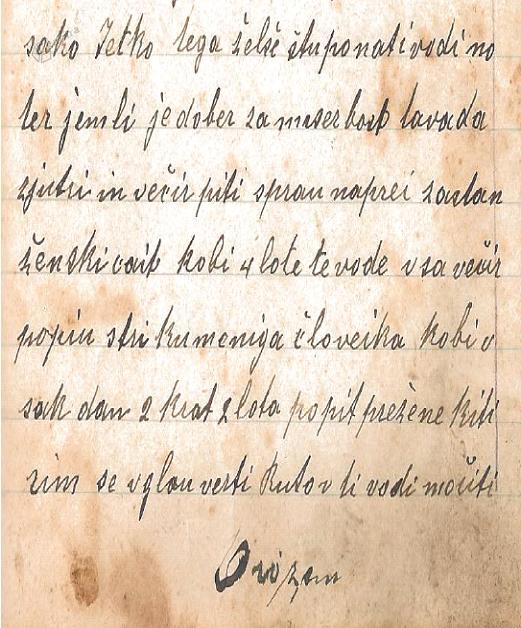 sako Jetko tega želše štuponati vodi no
ter jemli je dober za mserbost tavada
zjutri in večir piti sprau naprei zastan
ženski cait kobi 4 lote te vode v sa večir
popiu stri kumeniga človeika kobi v
sak dan 2 krat 2 lota popit prežene kiti
rim se v glau verti Kuto v ti vodi močiti